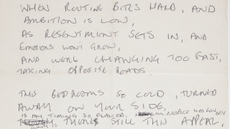 WHEN ROUTINE BITES HARD, AND
AMBITION IS LOW,
AS RESENTMENT SETS IN, AND
EMOTIONS WON'T GROW,
AND WERE CHANGING TOO FAST,
TAKING OPPOSITE ROADS.
THIS BEDROOMS SO COLD, TURNED
AWAY ON YOUR SIDE,
IS MY TIMING SO FLAWED,
THERES STILL THIS APPEAL,